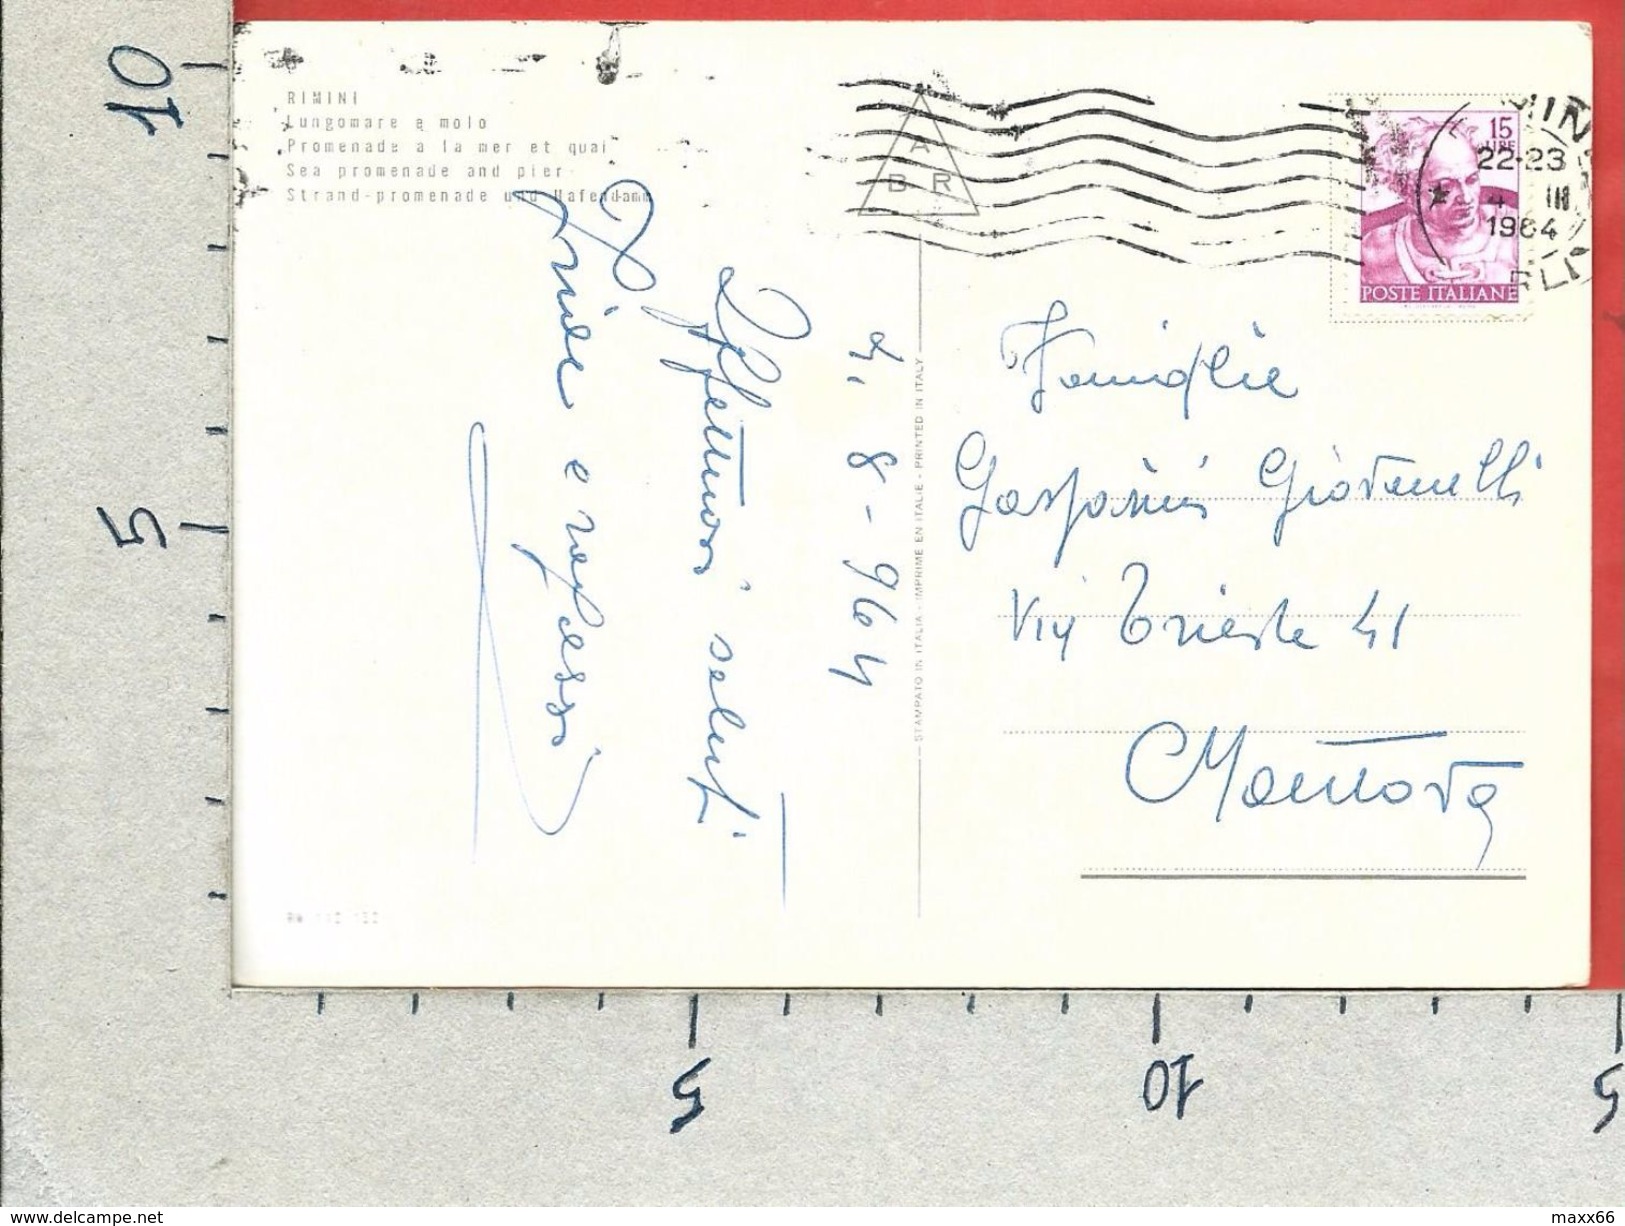 RIMINI
Lungomare e molo
Promenade a la mer et quai
Sea promenade and pier
Strand-promenade und Hafendamm
A
B R
15
LIRE
22-23
4 III
1964
POSTE ITALIANE
STAMPATO IN ITALIA - IMPRIME EN ITALIE - PRINTED IN ITALY
4. 8 - 964
Affettuosi saluti
e ragazzi
Famiglia
Gasparini Giovanelli
Via Trieste 41
Mantova
10
5
5
10
5
www.delcampe.net
maxx66